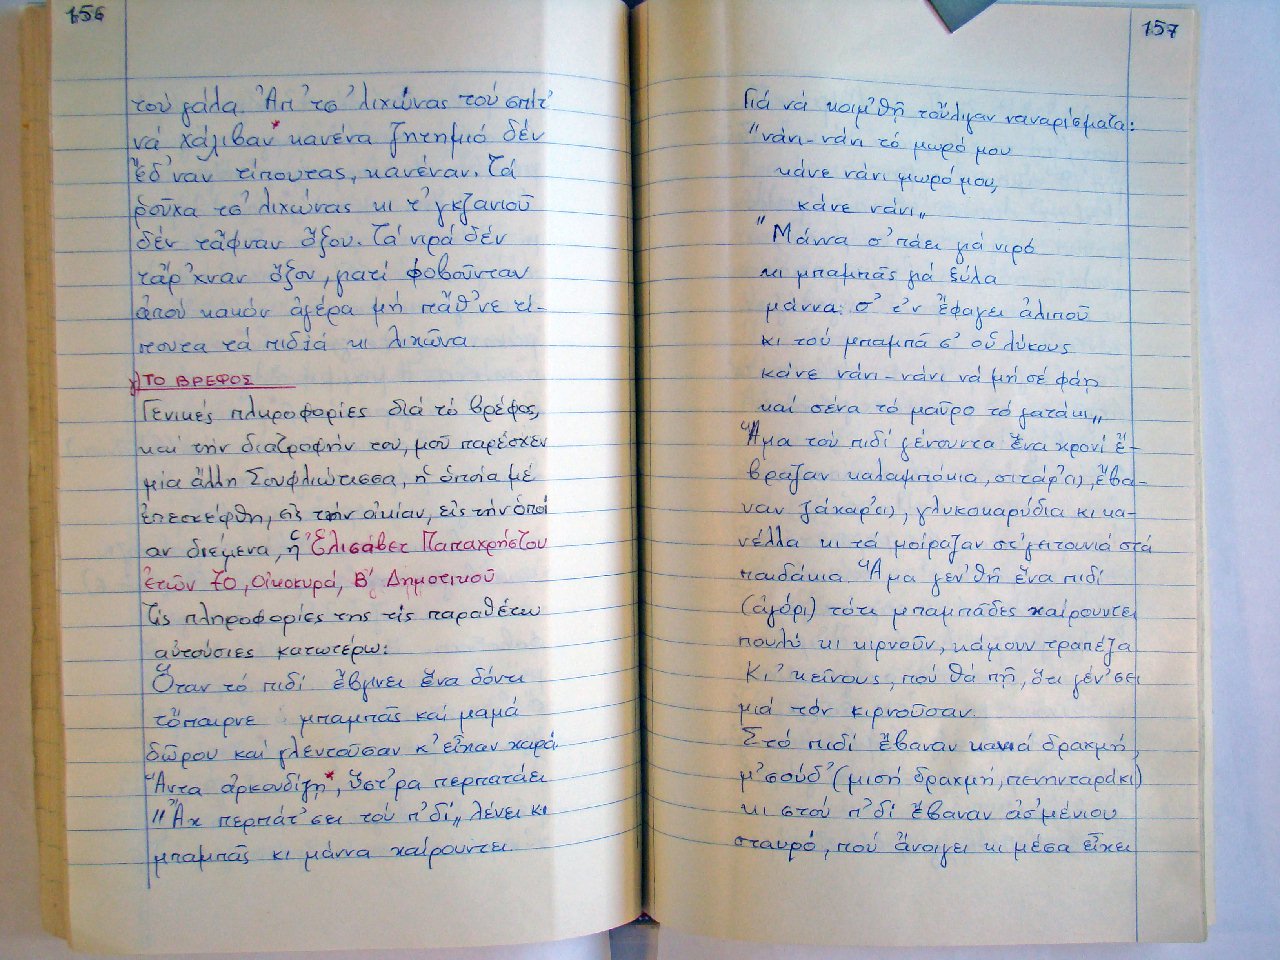 156
τού γάλα. Ἀπ' τσ' λιχώνας τού σπίτ'
νά χάλιβαν* κανένα ζητημιό δέν
ἔδ'ναν τίπουτας, κανέναν. Τά
ροῦχα τσ' λιχώνας κι τ' γκζανιοῦ
δέν τἄφναν ὄξου. Τά νιρά δέν
τἄρ'χναν ὄξου, γιατί φοβοῦνταν
ἀπού κακόν ἀγέρα μή πάθ'νε τί-
πουτα τά πιδιά κι λιχῶνα
γ) ΤΟ ΒΡΕΦΟΣ
Γενικές πληροφορίες διά τό βρέφος,
καί τήν διατροφήν του, μοῦ παρέσχεν
μία ἄλλη Σουφλιώτισσα, ἡ ὁποία μέ
ἐπεσκέφθη, εἰς τήν οἰκίαν, εἰς τήν ὁποί
αν διέμενα, ἡ Ἐλισάβετ Παπαχρήστου
ἐτῶν 70, οἰκοκυρά, Β' Δημοτικοῦ
Τίς πληροφορίες της τίς παραθέτω
αὐτούσιες κατωτέρω:
Ὅταν τό πιδί ἔβγινει ἕνα δόντι
τὄπαιρνε μπαμπᾶς καί μαμά
δῶρου καί γλεντοῦσαν κ' εἶχαν χαρά
Ἄντα ἀρκουδίζῃ*, ὕστ'ρα περπατάει
"Ἄχ περπάτ'σει τού π'δί" λένει κι
μπαμπᾶς κι μάννα χαίρουντει
157
Γιά νά κοιμ'θῆ τοὔλιγαν ναναρίσματα:
"νάνι-νάνι τό μωρό μου
κάνε νάνι μωρό μου,
κάνε νάνι"
"Μάννα σ' πάει γιά νιρό
κι μπαμπᾶς γιά ξύλα
μάννα σ' τ'ν ἔφαγει ἀλιπού
κι τού μπαμπά σ' οὗ λύκους
κάνε νάνι-νάνι νά μή σέ φάῃ
καί σένα τό μαῦρο τό γατάκι"
Ἅμα τού πιδί γένουντα ἕνα χρονί ἔ-
βραζαν καλαμπόκια, σιτάρ(ι), ἔβα-
ναν ζάχαρ(ι), γλυκοκαρύδια κι κα-
νέλλα κι τά μοίραζαν στ'γειτουνιά στά
παιδάκια. Ἅμα γεν'θῆ ἕνα πιδί
(ἀγόρι) τότι μπαμπάδες χαίρουντει
πουλύ κι κιρνοῦν, κάμουν τραπέζα
Κι' κείνους, πού θά πῆ, ὅτι γέν'σει
μιά τόν κιρνοῦσαν.
Στό πιδί ἔβαναν καμιά δραχμή,
μ'σούδ' (μισή δραχμή, πενηνταράκι)
κι στού π'δί ἔβαναν ἀσ'μένιου
σταυρό, πού ἄνοιγει κι μέσα εἶχει